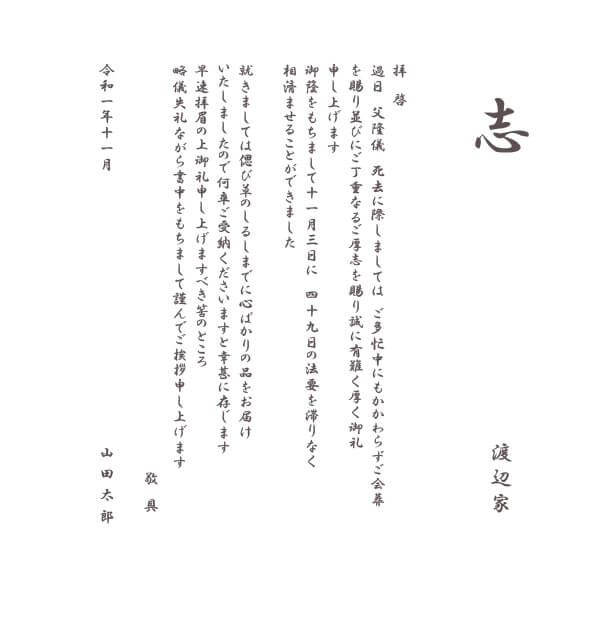 志
渡辺家
拝啓
過日 父隆儀 死去に際しましては ご多忙中にもかかわらずご会葬
を賜り並びにご丁重なるご厚志を賜り誠に有難く厚く御礼
申し上げます
御蔭をもちまして十一月三日に 四十九日の法要を滞りなく
相済ませることができました
就きましては偲び草のしるしまでに心ばかりの品をお届け
いたしましたので何卒ご受納くださいますと幸甚に存じます
早速拝眉の上御礼申し上げますべき筈のところ
略儀失礼ながら書中をもちまして謹んでご挨拶申し上げます
敬具
令和一年十一月
山田太郎